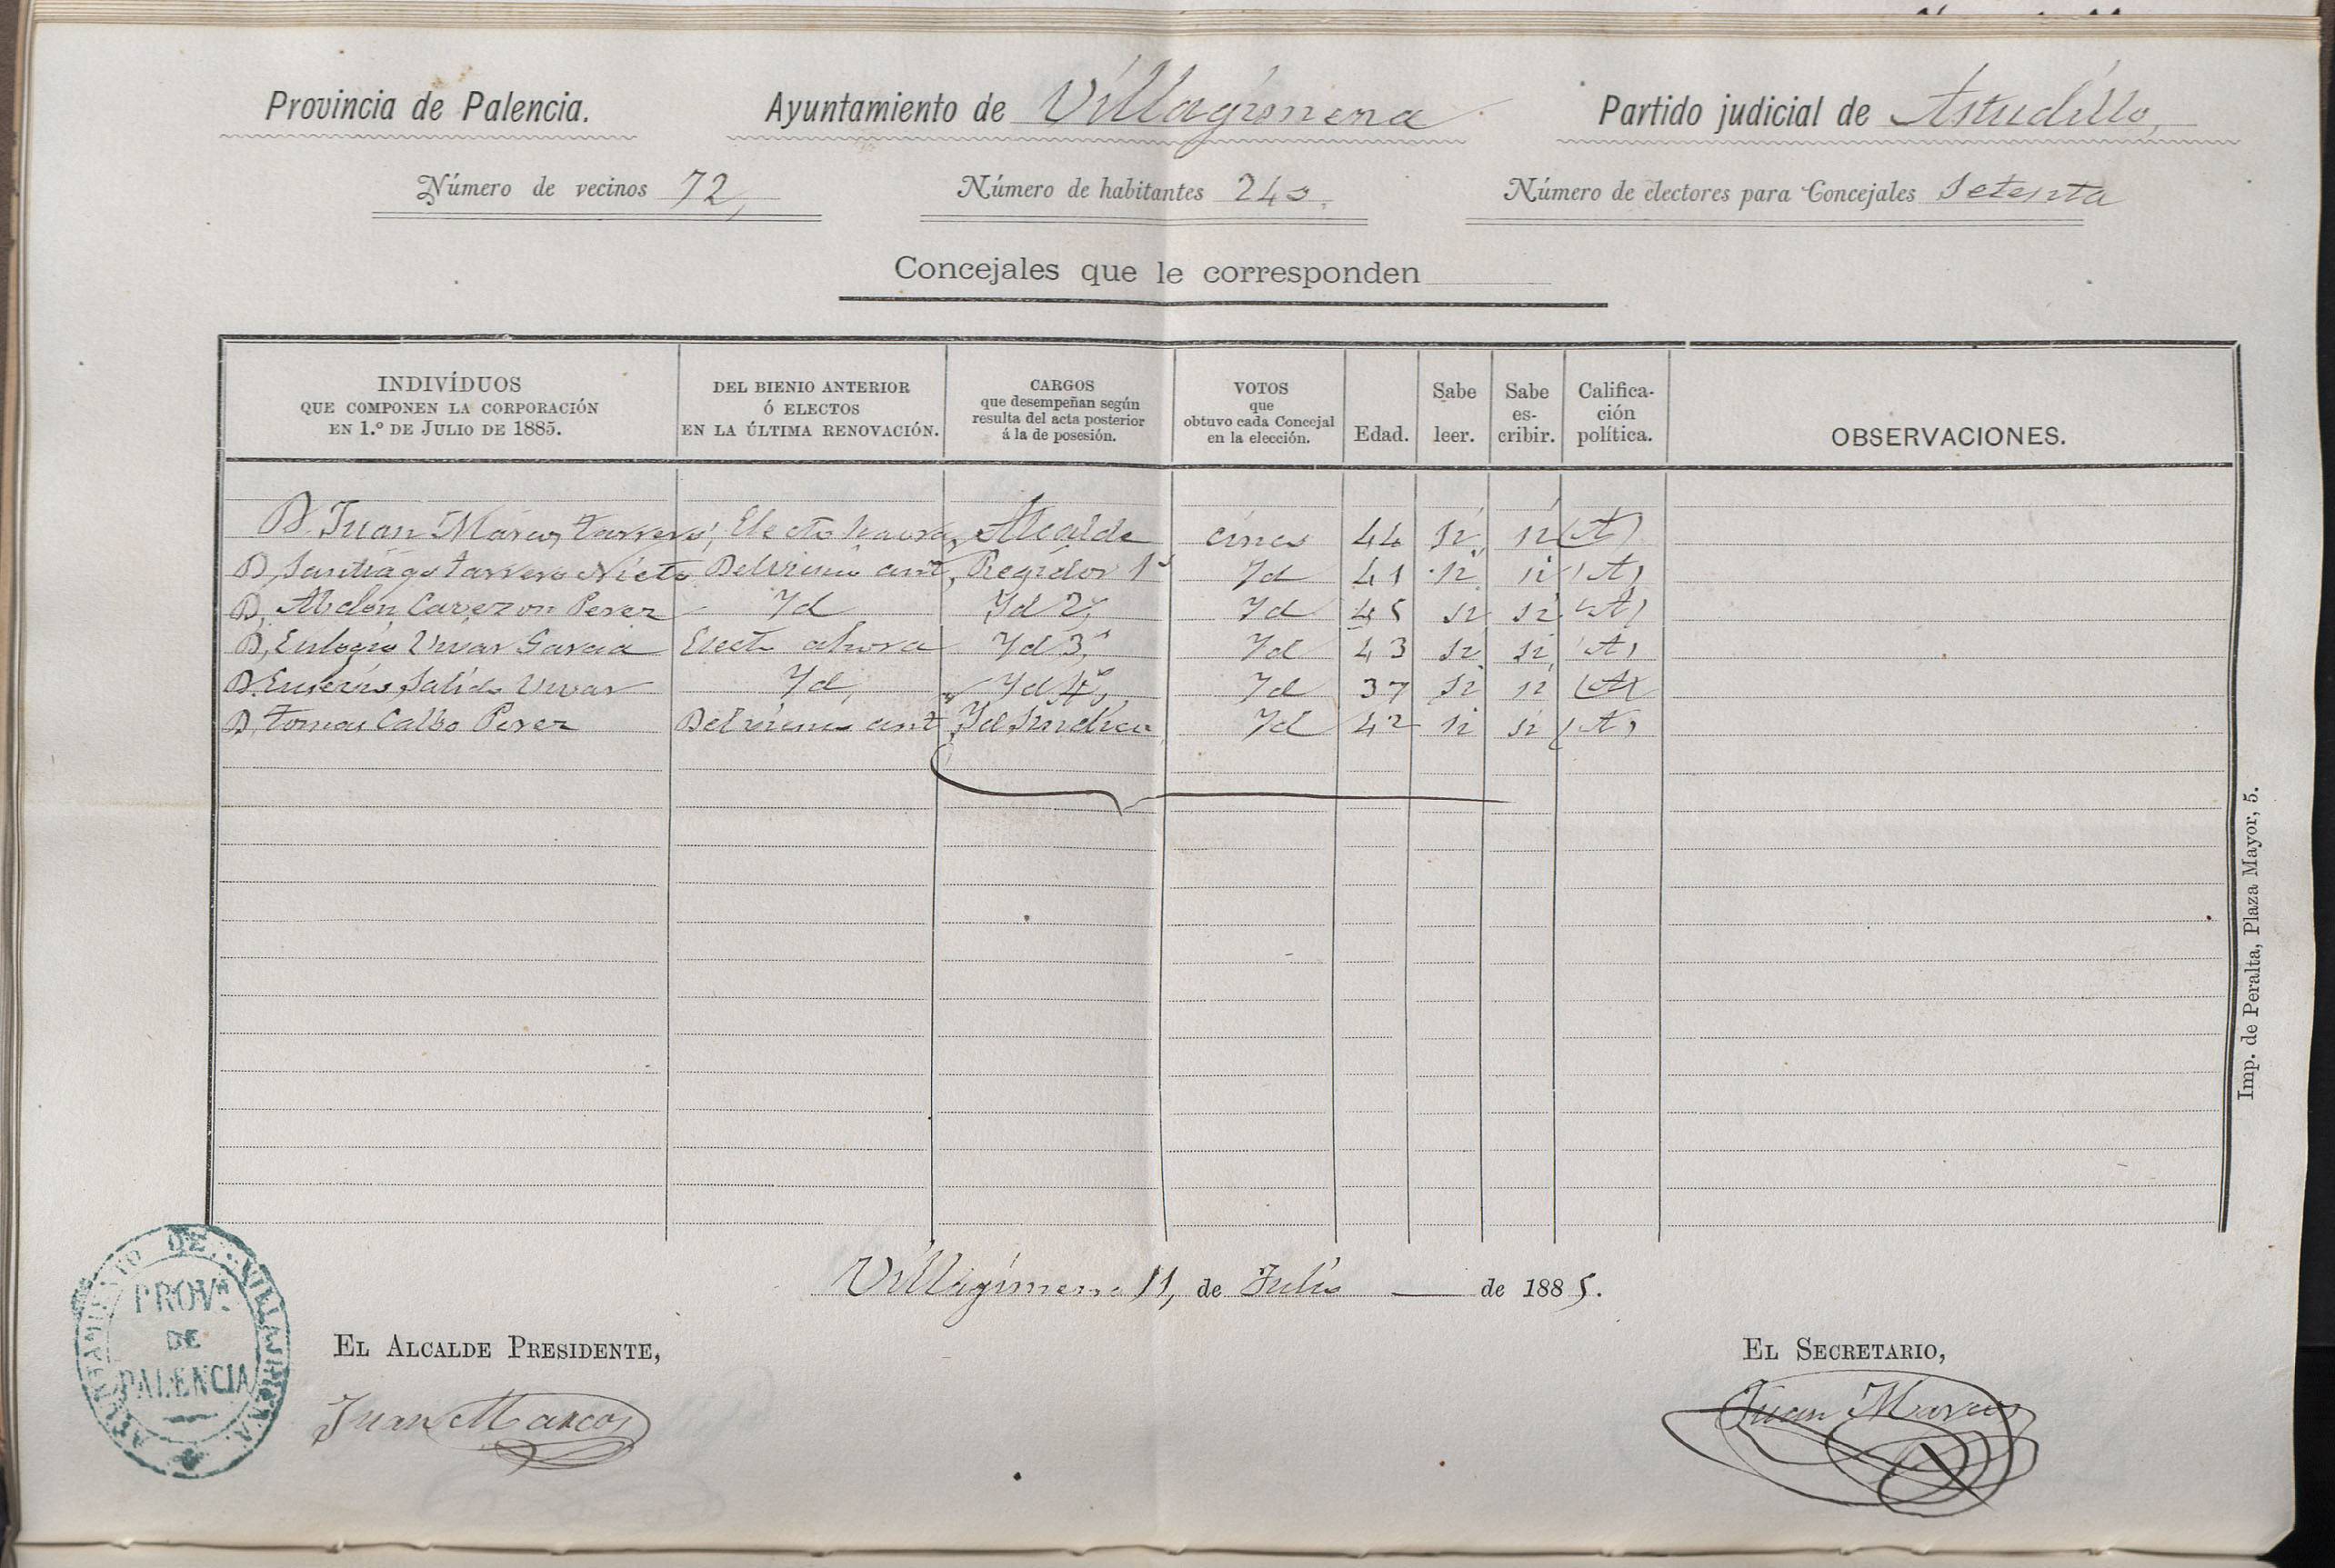 Provincia de Palencia. Ayuntamiento de Villagimena Partido judicial de Astudillo,
Número de vecinos 72, Número de habitantes 240. Número de electores para Concejales Setenta
Concejales que le corresponden
INDIVÍDUOS QUE COMPONEN LA CORPORACIÓN EN 1.º DE JULIO DE 1885. DEL BIENIO ANTERIOR Ó ELECTOS EN LA ÚLTIMA RENOVACIÓN. CARGOS que desempeñan según resulta del acta posterior á la de posesión. VOTOS que obtuvo cada Concejal en la elección. Edad. Sabe leer. Sabe es-cribir. Califica-ción política. OBSERVACIONES.
D. Juan Márcos Tarrero, Electo Alcalde cinco 44 si, si (A)
D, Santiago Tarrero Nieto Del vienio ant, Regidor 1º Yd 41 si si (A)
D, Abdón Cavezon Perez - Yd Yd 2º, Yd 45 si si (A)
D, Eulogio Vivar Garcia Electo ahora Yd 3º, Yd 43 si si, (A)
D. Eusevio Salido Vivar Yd, Yd 4º, Yd 37 si si (A)
D, Tomas Calbo Perez Del vienio ant Yd Sindico Yd 42 si si (A)
Villagimena 11, de Julio de 1885.
EL ALCALDE PRESIDENTE, EL SECRETARIO,
Juan Marcos Juan Marcos
AYUNTAMIENTO DE VILLAJIMENA.
PROVª
DE
PALENCIA
Imp. de Peralta, Plaza Mayor, 5.